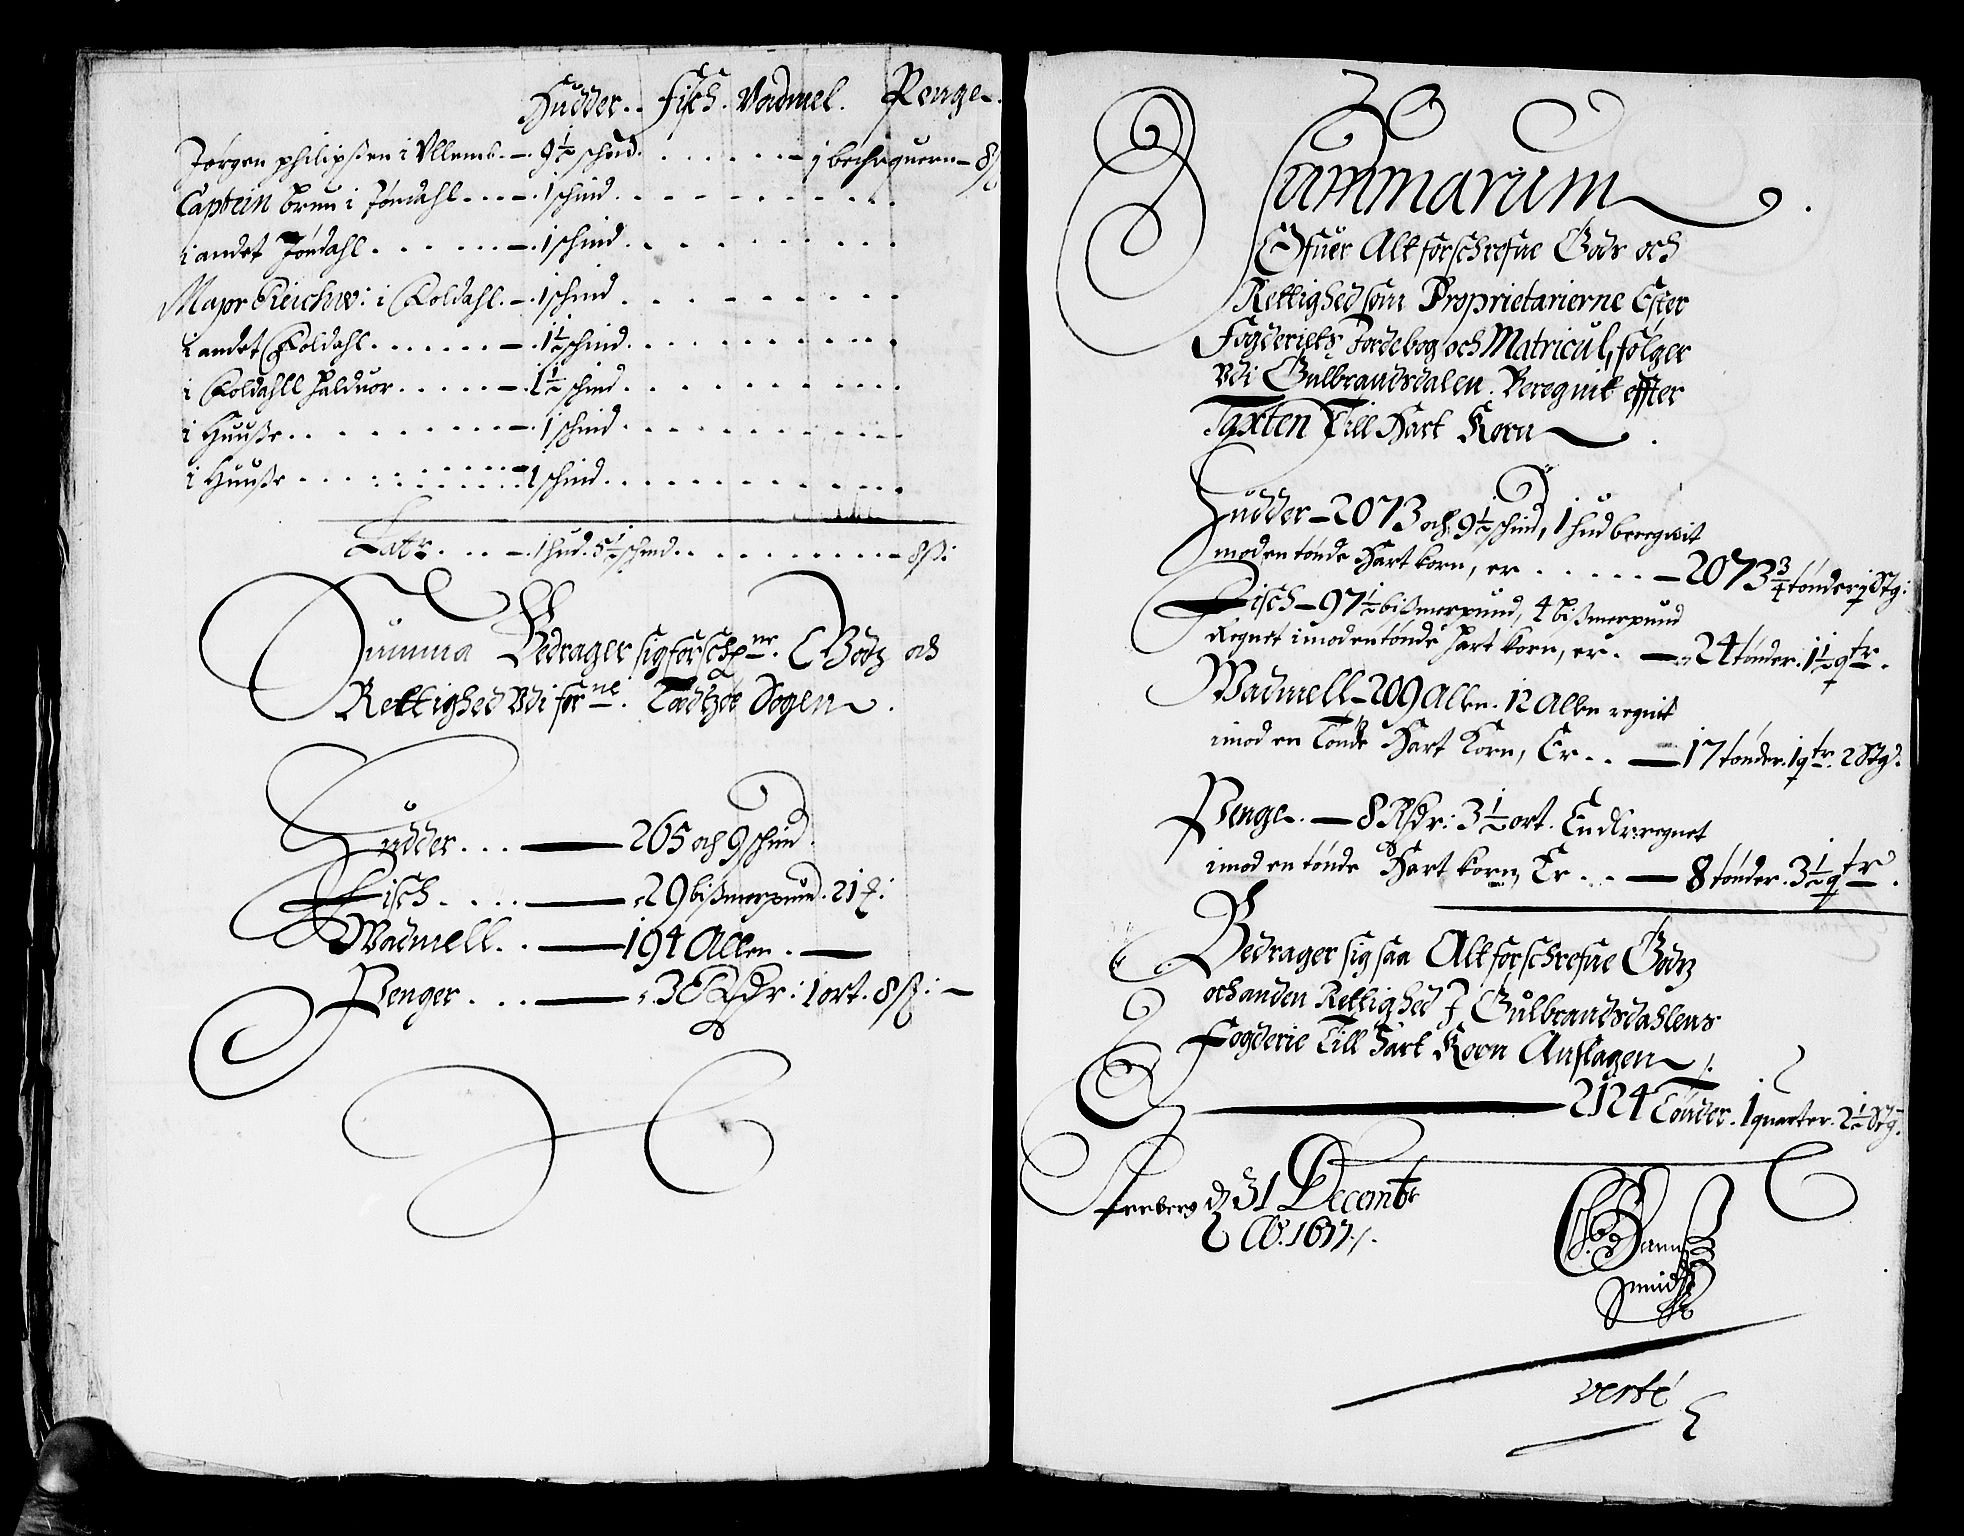 Hudder.. Fisch. Vadmel. Penge.
Jørgen philipßen i Ullemb. — 9½ schind. . . . . . . — 1 bechequern — 8ß
Captein brun i Jøndahl . . . — . 1 schind . . . . . . . . .
i andet Jøndahl . . . . . . — . 1 schind . . . . . . . . .
Major Reichw: i Koldahl . — . 1 schind . . . . . . . .
i andet Koldahl . . . . . . — . 1½ schind . . . . . . . . .
i Koldahll halduor . . . . . — . 1½ schind . . . . . . . . .
i Huuße . . . . . . . . . — . 1 schind . . . . . . . . .
i Huuße . . . . . . . . . 1 schind . . . . . . . . .
Latr. . . . — . 1 hud. 5½ schind . . . . . . . . — 8ß:
Summa Bedrager sig forschne. Godz och
Rettighed Udi forne. Sogen.
Hudder . . . — 265 och 9 schind.
Fisch . . . . — 29 bißmerpund. 21 ℔:
Wadmell . . — 194 Allen . —
Penger . . . — 3 Rdr: 1 ort. 8ß: —
Summarum
Ofuer Alt forschrefne Gods och
Rettighed som Proprietarierne Efter
Fogderiets Jordebog och Matricul, følger
Udi Gulbrandsdalen. Beregnit effter
Taxten Till Hart Korn .
Hudder — 2073 och 9½ schind, 1 hud beregnit
mod en tønde Hart korn, er . . . . . — 2073¾ tønder ½ Stg:
Fisch — 97½ bißmerpund, 4 bißmerpund
Regnet imod en tønde Hart korn, er . — 24 tønder. 1½ qtr.
Wadmell — 209 Allen. 12 Allen regnit
imod en Tønde Hart Korn, Er . . — 17 tønder. 1 qtr. 2 Stg:
Penge. — 8 Rdr: 3½ ort. En dlr. regnet
imod en tønde Hart korn, Er . . — 8 tønder. 3½ qtr.
Bedrager sig saa Alt forschrefne Godz
och anden Rettighed J Gulbrandsdahlens
Fogderie Till Hart Korn Anslagen /:
— 2124 Tønder. 1 quarter. 2½ Stg:
d 31 Decembr
Ao. 1677 /.
verte